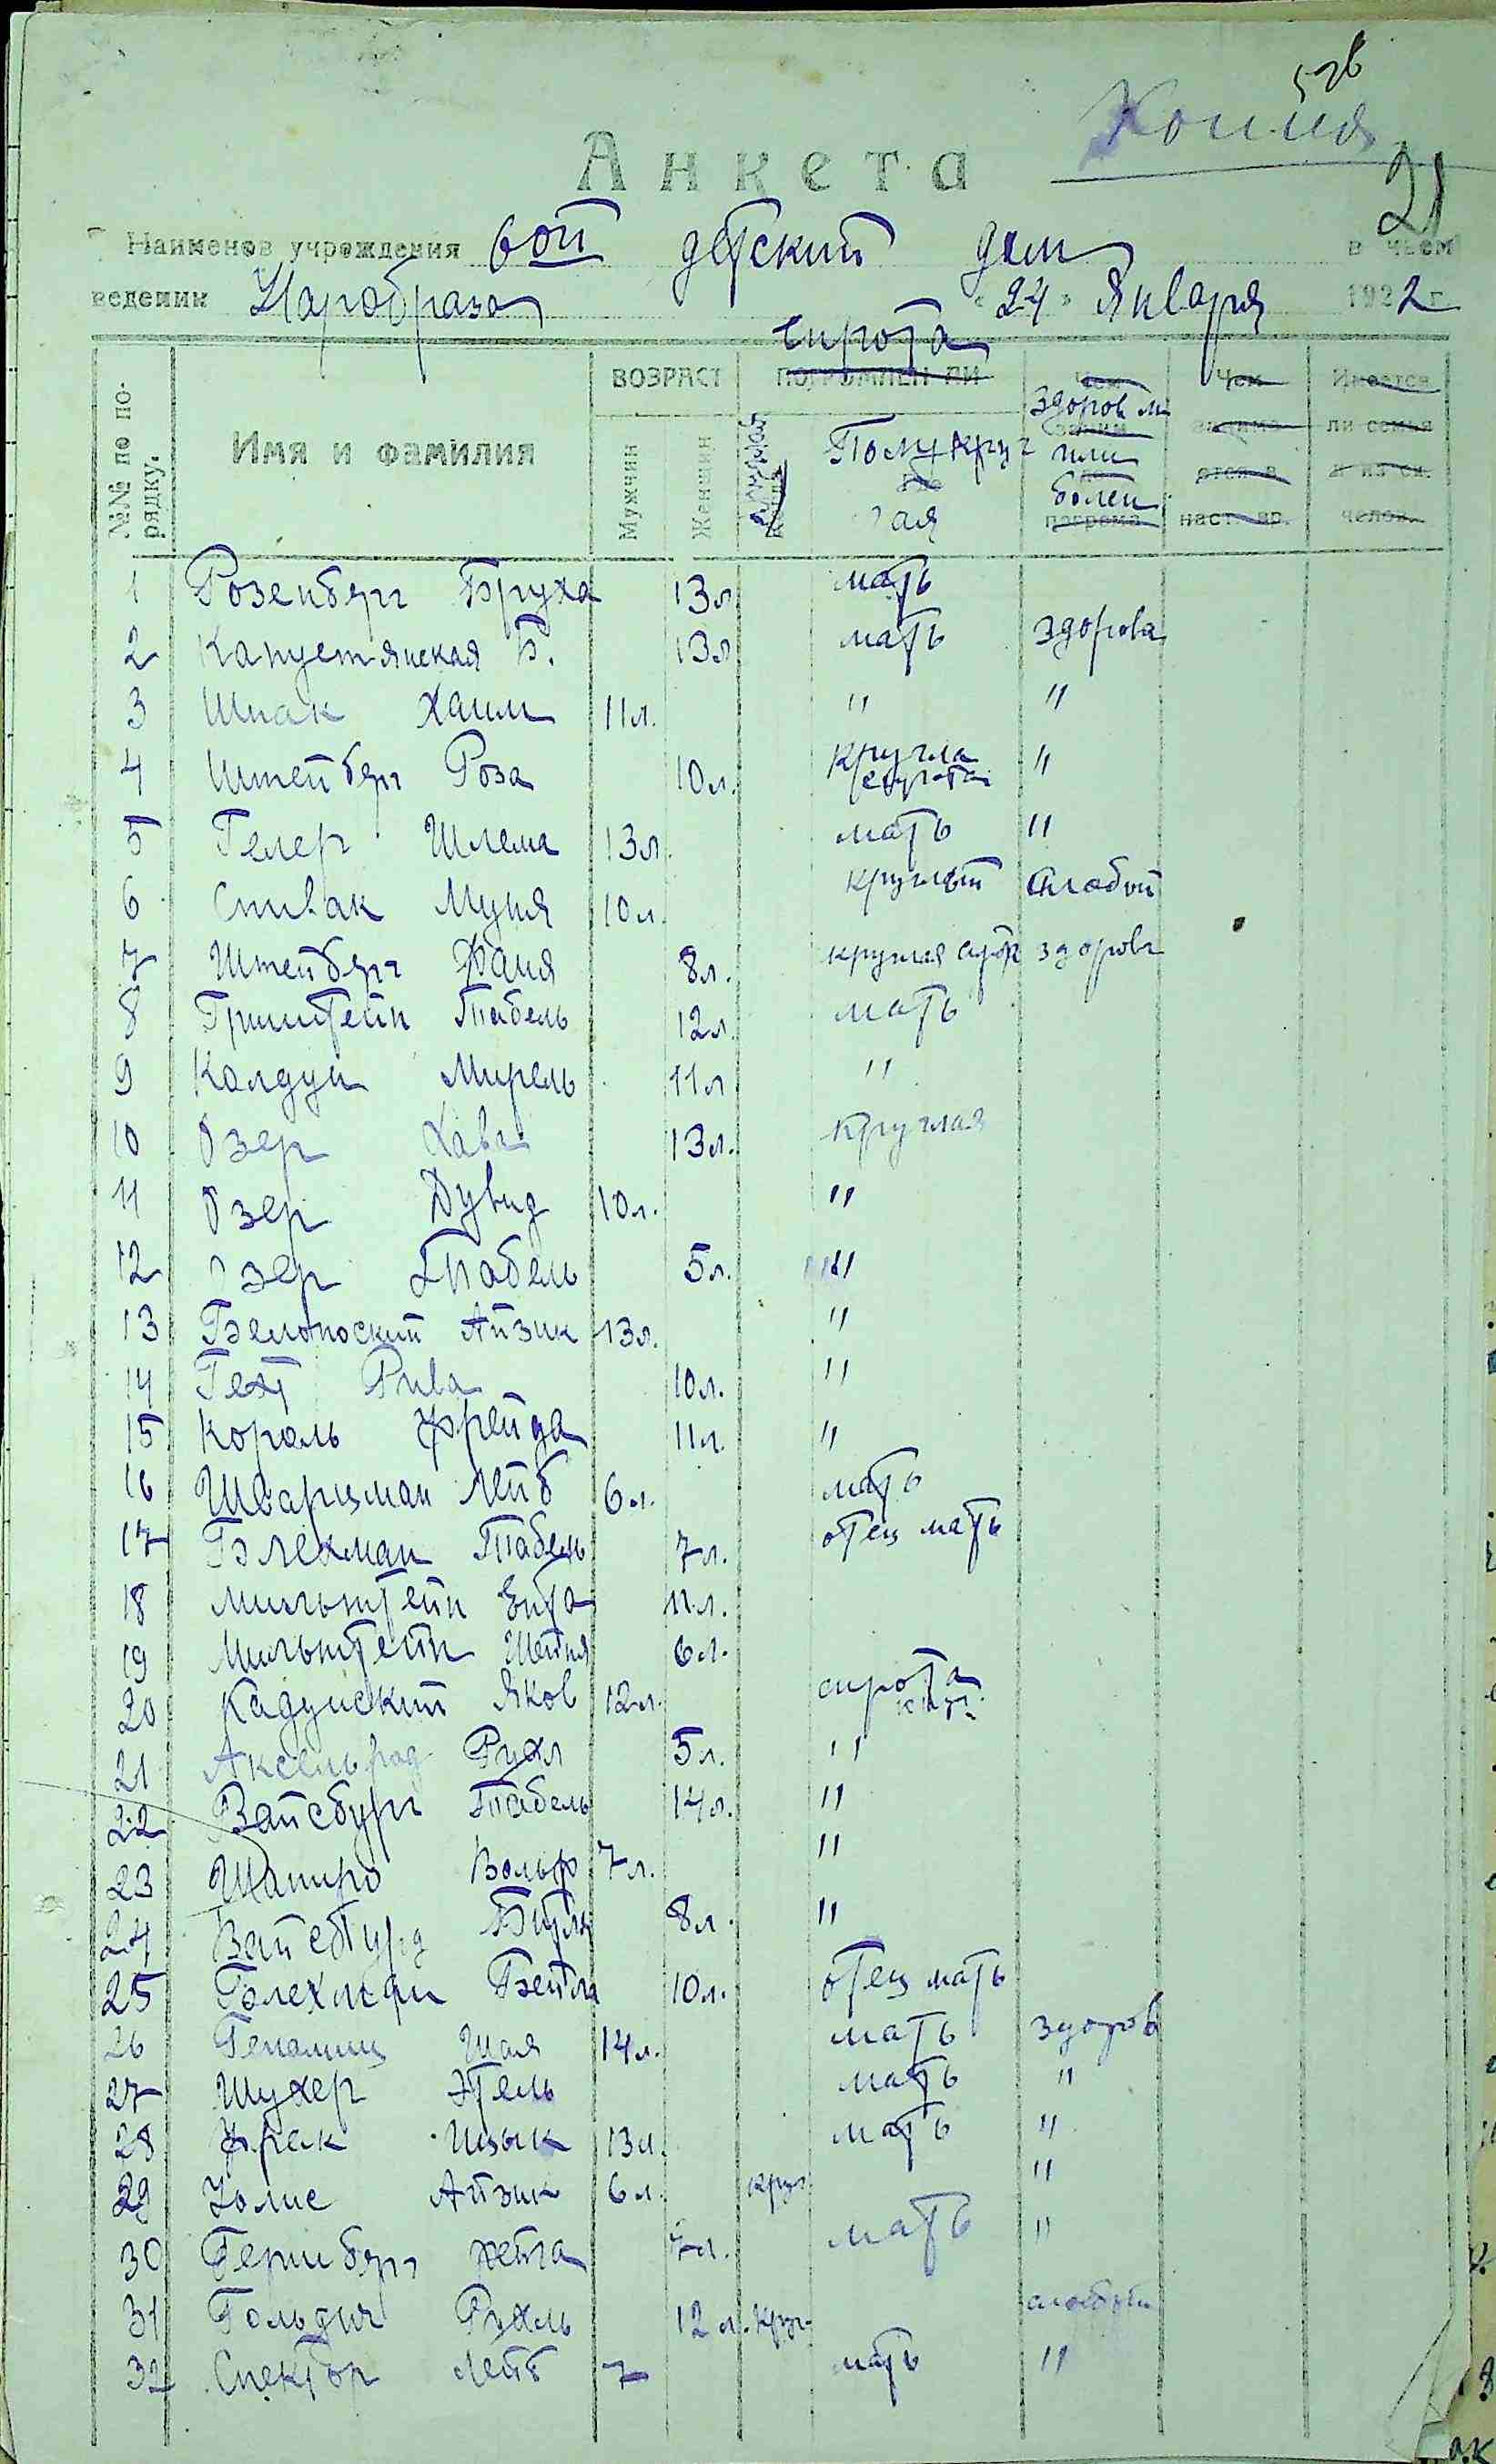 Копия
21
Анкета
Наименов учреждения 6ой детский дом в чьем
ведении Наробраза "24" Января 1922 г.
сирота
№№ по порядку. Имя и фамилия ВОЗРАСТ Мужчин Женщин погромлен ли
Полукруг
лая
здоров ли
или
болен
погрома
Чем
занима
ется в
наст. вр.
Имеется
ли семья
и из ск.
челов.
1 Розенберг Бруха 13л мать
2 Капустянская Б. 13л мать здорова
3 Шпак Хаим 11л. " "
4 Штейнберг Роза 10л. кругла сирота "
5 Гелер Шлема 13л. мать "
6 Спивак Муня 10л. круглый слабый
7 Штейнберг Фаня 8л. круглая сирот здорова
8 Гринштейн Табель 12л. мать
9 Колдун Мирель 11л "
10 Озер Хава 13л. круглая
11 Озер Дувид 10л. "
12 Озер Табель 5л. "
13 Белопоский Айзик 13л. "
14 Гехт Рива 10л. "
15 Король Фрейда 11л. "
16 Шварцман Лейб 6л. мать
17 Блехман Табель 7л. отец мать
18 Мильштейн Ента 11л.
19 Мильштейн Шейня 6л.
20 Кадунский Яков 12л. сирота круг.
21 Аксельрод Рухл 5л. "
22 Вайсбург Табель 14л. "
23 Шапиро Вольф 7л. "
24 Вайсбурд 8л. "
25 Блехман Бейла 10л. отец мать
26 Шая 14л. мать здоров
27 Шухер Этель мать "
28 Фрак Ицык 13л. мать "
29 Айзик 6л. круг. "
30 Гершберг Хейта 7л. мать "
31 Гольдич Рухль 12л. круг. слабый
32 Спектор Лейб 7 мать "